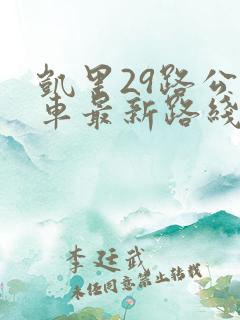 凯里29路公
车最新路线
李廷武
未经同意禁止转载